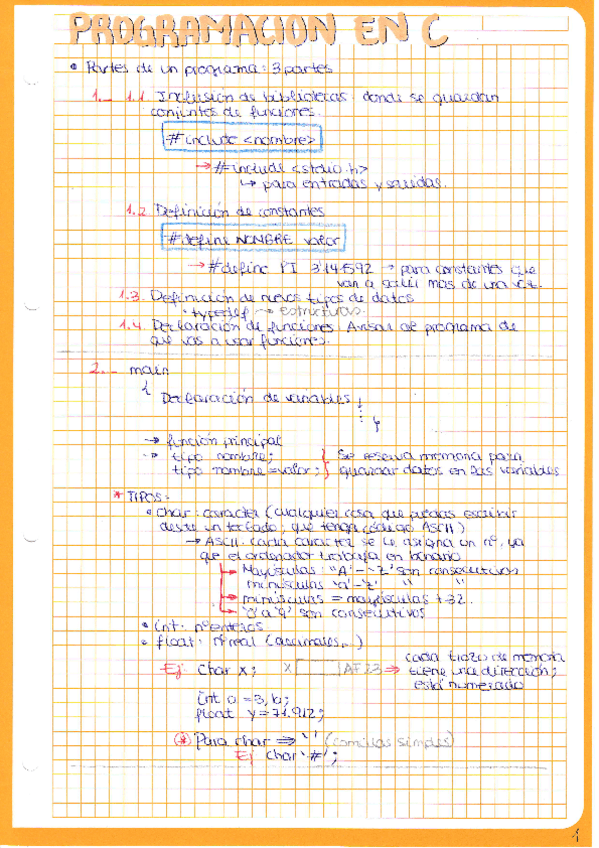 PROGRAMACION EN C
• Partes de un programa: 3 partes
1._ 1.1. Inclusión de bibliotecas: donde se guardan
conjuntos de funciones.
#include <nombre>
→ #include <stdio.h>
↳ para entradas y salidas.
1.2. Definición de constantes
#define NOMBRE valor
→ #define PI 3'141592 → para constantes que
van a salir más de una vez.
1.3. Definición de nuevos tipos de datos
· typedef → estructuras.
1.4. Declaración de funciones. Avisar al programa de
que vas a usar funciones.
2._ main
{
Declaración de variables;
}
→ función principal
→ tipo nombre; } Se reserva memoria para
tipo nombre = valor; } guardar datos en las variables
* TIPOS:
• char: caracter (cualquier cosa que puedas escribir
desde un teclado, que tenga código ASCII)
→ ASCII: cada caracter se le asigna un nº, ya
que el ordenador trabaja en binario
→ Mayúsculas: "A'-'Z' son consecutivos
minúsculas 'a'-'z' " "
→ minúsculas = mayúsculas +32.
→ '0' a '9' son consecutivos
• int: nº enteros
• float: nº real (decimales...)
Ej: char x; x AF23 ⇒ cada trozo de memoria
tiene una dirección;
está numerado
int a = 3, b;
float y = 71.912;
* Para char ⇒ ' ' (comillas simples)
Ej char '#';
1